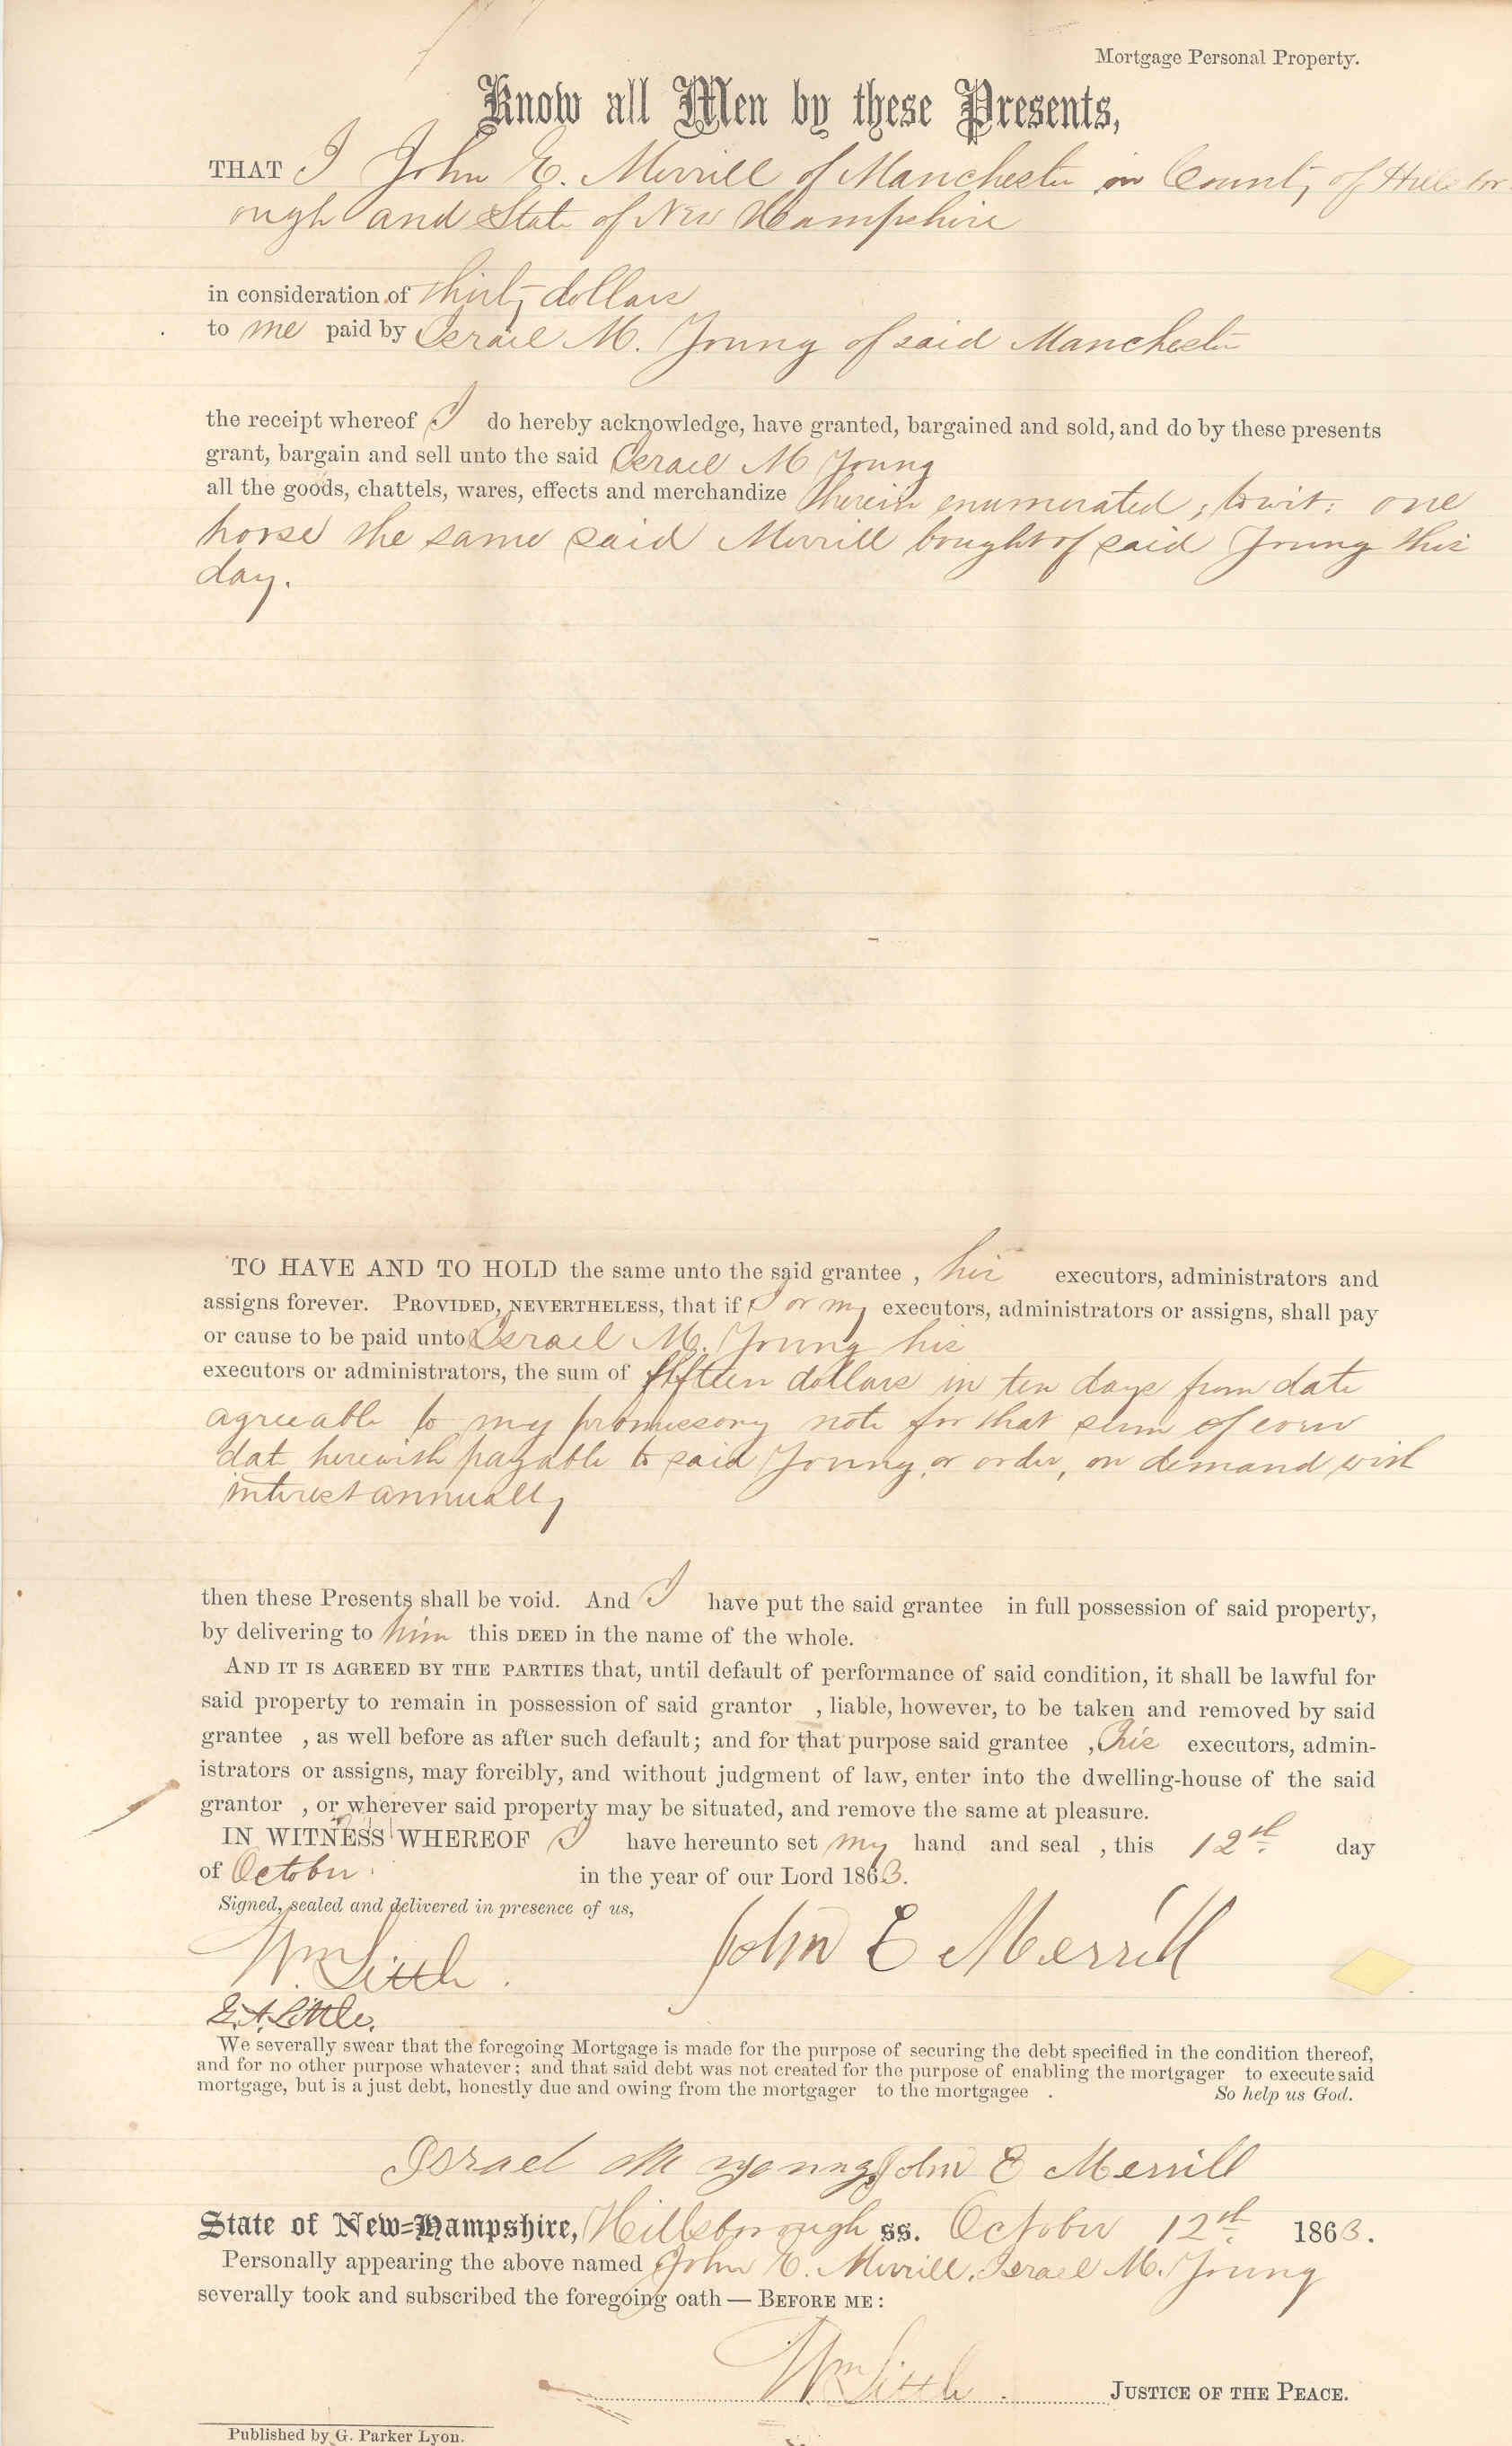 Mortgage Personal Property.
Know all Men by these Presents,
THAT I John E. Merrill of Manchester in County of Hillsbor
ough and State of New Hampshire
in consideration of thirty dollars
to me paid by Israel M. Young of said Manchester
the receipt whereof I do hereby acknowledge, have granted, bargained and sold, and do by these presents
grant, bargain and sell unto the said Israel M Young
all the goods, chattels, wares, effects and merchandize herein enumerated, to wit: one
horse the same said Merrill bought of said Young this
day.
TO HAVE AND TO HOLD the same unto the said grantee , his executors, administrators and
assigns forever. PROVIDED, NEVERTHELESS, that if I or my executors, administrators or assigns, shall pay
or cause to be paid unto Israel M. Young his
executors or administrators, the sum of fifteen dollars in ten days from date
agreeable to my promissory note for that sum of even
dat herewith payable to said Young, or order, on demand with
interest annually
then these Presents shall be void. And I have put the said grantee in full possession of said property,
by delivering to him this DEED in the name of the whole.
AND IT IS AGREED BY THE PARTIES that, until default of performance of said condition, it shall be lawful for
said property to remain in possession of said grantor , liable, however, to be taken and removed by said
grantee , as well before as after such default; and for that purpose said grantee , his executors, admin-
istrators or assigns, may forcibly, and without judgment of law, enter into the dwelling-house of the said
grantor , or wherever said property may be situated, and remove the same at pleasure.
IN WITNESS WHEREOF I have hereunto set my hand and seal , this 12th day
of October in the year of our Lord 1863.
Signed, sealed and delivered in presence of us,
Wm Little. John E Merrill
G. A. Little.
We severally swear that the foregoing Mortgage is made for the purpose of securing the debt specified in the condition thereof,
and for no other purpose whatever; and that said debt was not created for the purpose of enabling the mortgager to execute said
mortgage, but is a just debt, honestly due and owing from the mortgager to the mortgagee . So help us God.
Israel M Young John E Merrill
State of New=Hampshire, Hillsborough ss. October 12th 1863.
Personally appearing the above named John E. Merrill, Israel M. Young
severally took and subscribed the foregoing oath — BEFORE ME:
Wm Little. JUSTICE OF THE PEACE.
Published by G. Parker Lyon.